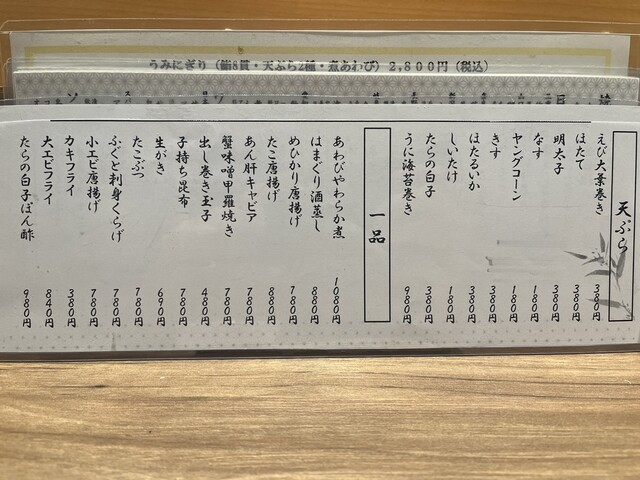 うみにぎり（鮨8貫・天ぷら2種・煮あわび）2,800円（税込）
天ぷら
えび大葉巻き 380円
ほたて 380円
明太子 380円
なす 180円
ヤングコーン 180円
きす 380円
ほたるいか 380円
しいたけ 180円
たらの白子 380円
うに海苔巻き 980円
一品
あわびやわらか煮 1080円
はまぐり酒蒸し 880円
めひかり唐揚げ 780円
たこ唐揚げ 880円
あん肝キャビア 780円
蟹味噌甲羅焼き 780円
出し巻き玉子 480円
子持ち昆布 780円
生がき 690円
たこぶつ 780円
ふぐと刺身くらげ 780円
小エビ唐揚げ 780円
カキフライ 380円
大エビフライ 840円
たらの白子ぽん酢 980円